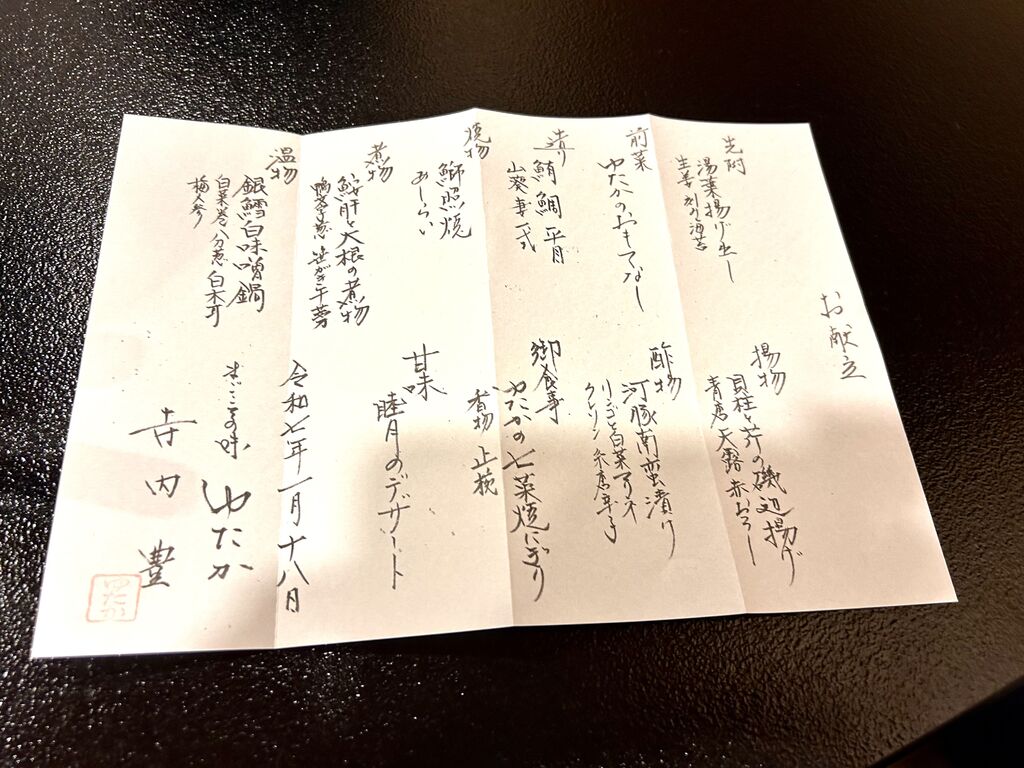 お献立
先附
湯葉揚げ出し
生姜 刻み海苔
前菜
ゆたかのおもてなし
造り
鮪 鯛 平貝
山葵 妻一式
焼物
鰤照焼
あしらい
煮物
鮟肝と大根の煮物
笹がき牛蒡
温物
銀鱈白味噌鍋
白菜巻 八分葱 白木耳
梅人参
揚物
貝柱と芹の磯辺揚げ
青唐 天露 赤おろし
酢物
河豚南蛮漬け
りんごと白菜
クレソン 糸唐辛子
御食事
ゆたかの七菜焼にぎり
香物 止椀
甘味
睦月のデザート
令和七年一月十八日
まごころの味 ゆたか
寺内 豊